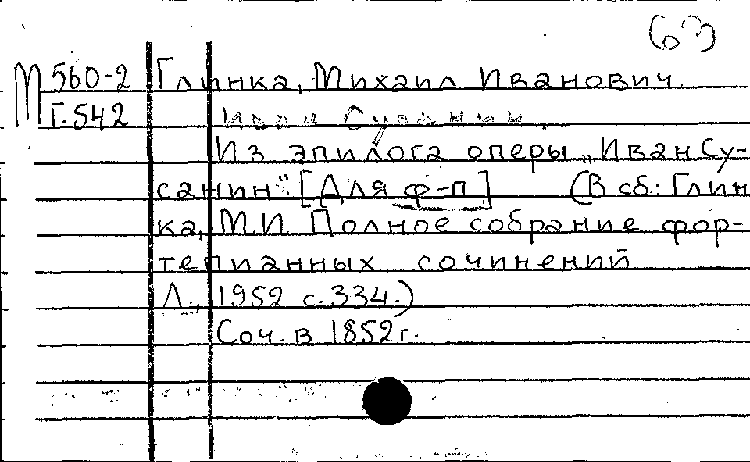 63
М 560-2 Глинка, Михаил Иванович.
Г.542 Иван Сусанин.
Из эпилога оперы „Иван Су-
санин" [Для ф-п] (В сб.: Глин
ка, М.И. Полное собрание фор-
тепианных сочинений
Л., 1952 с.334.)
Соч. в 1852г.